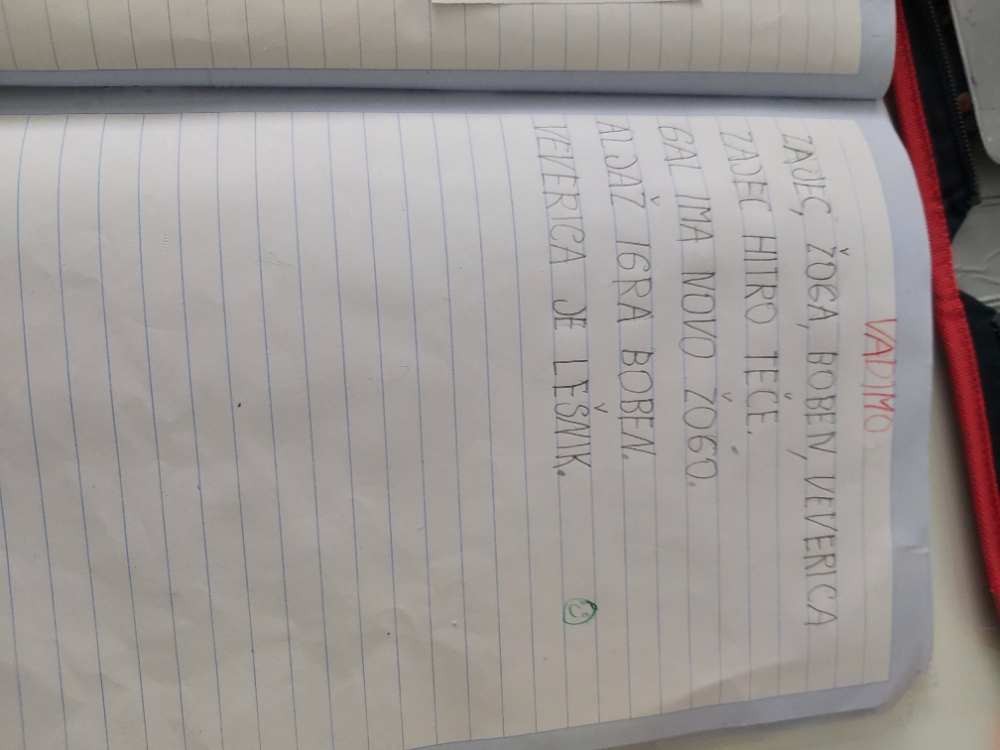 VADIMO
ZAJEC, ŽOGA, BOBEN, VEVERICA
ZAJEC HITRO TEČE.
GAL IMA NOVO ŽOGO.
ALJAŽ IGRA BOBEN.
VEVERICA JE LEŠNIK.